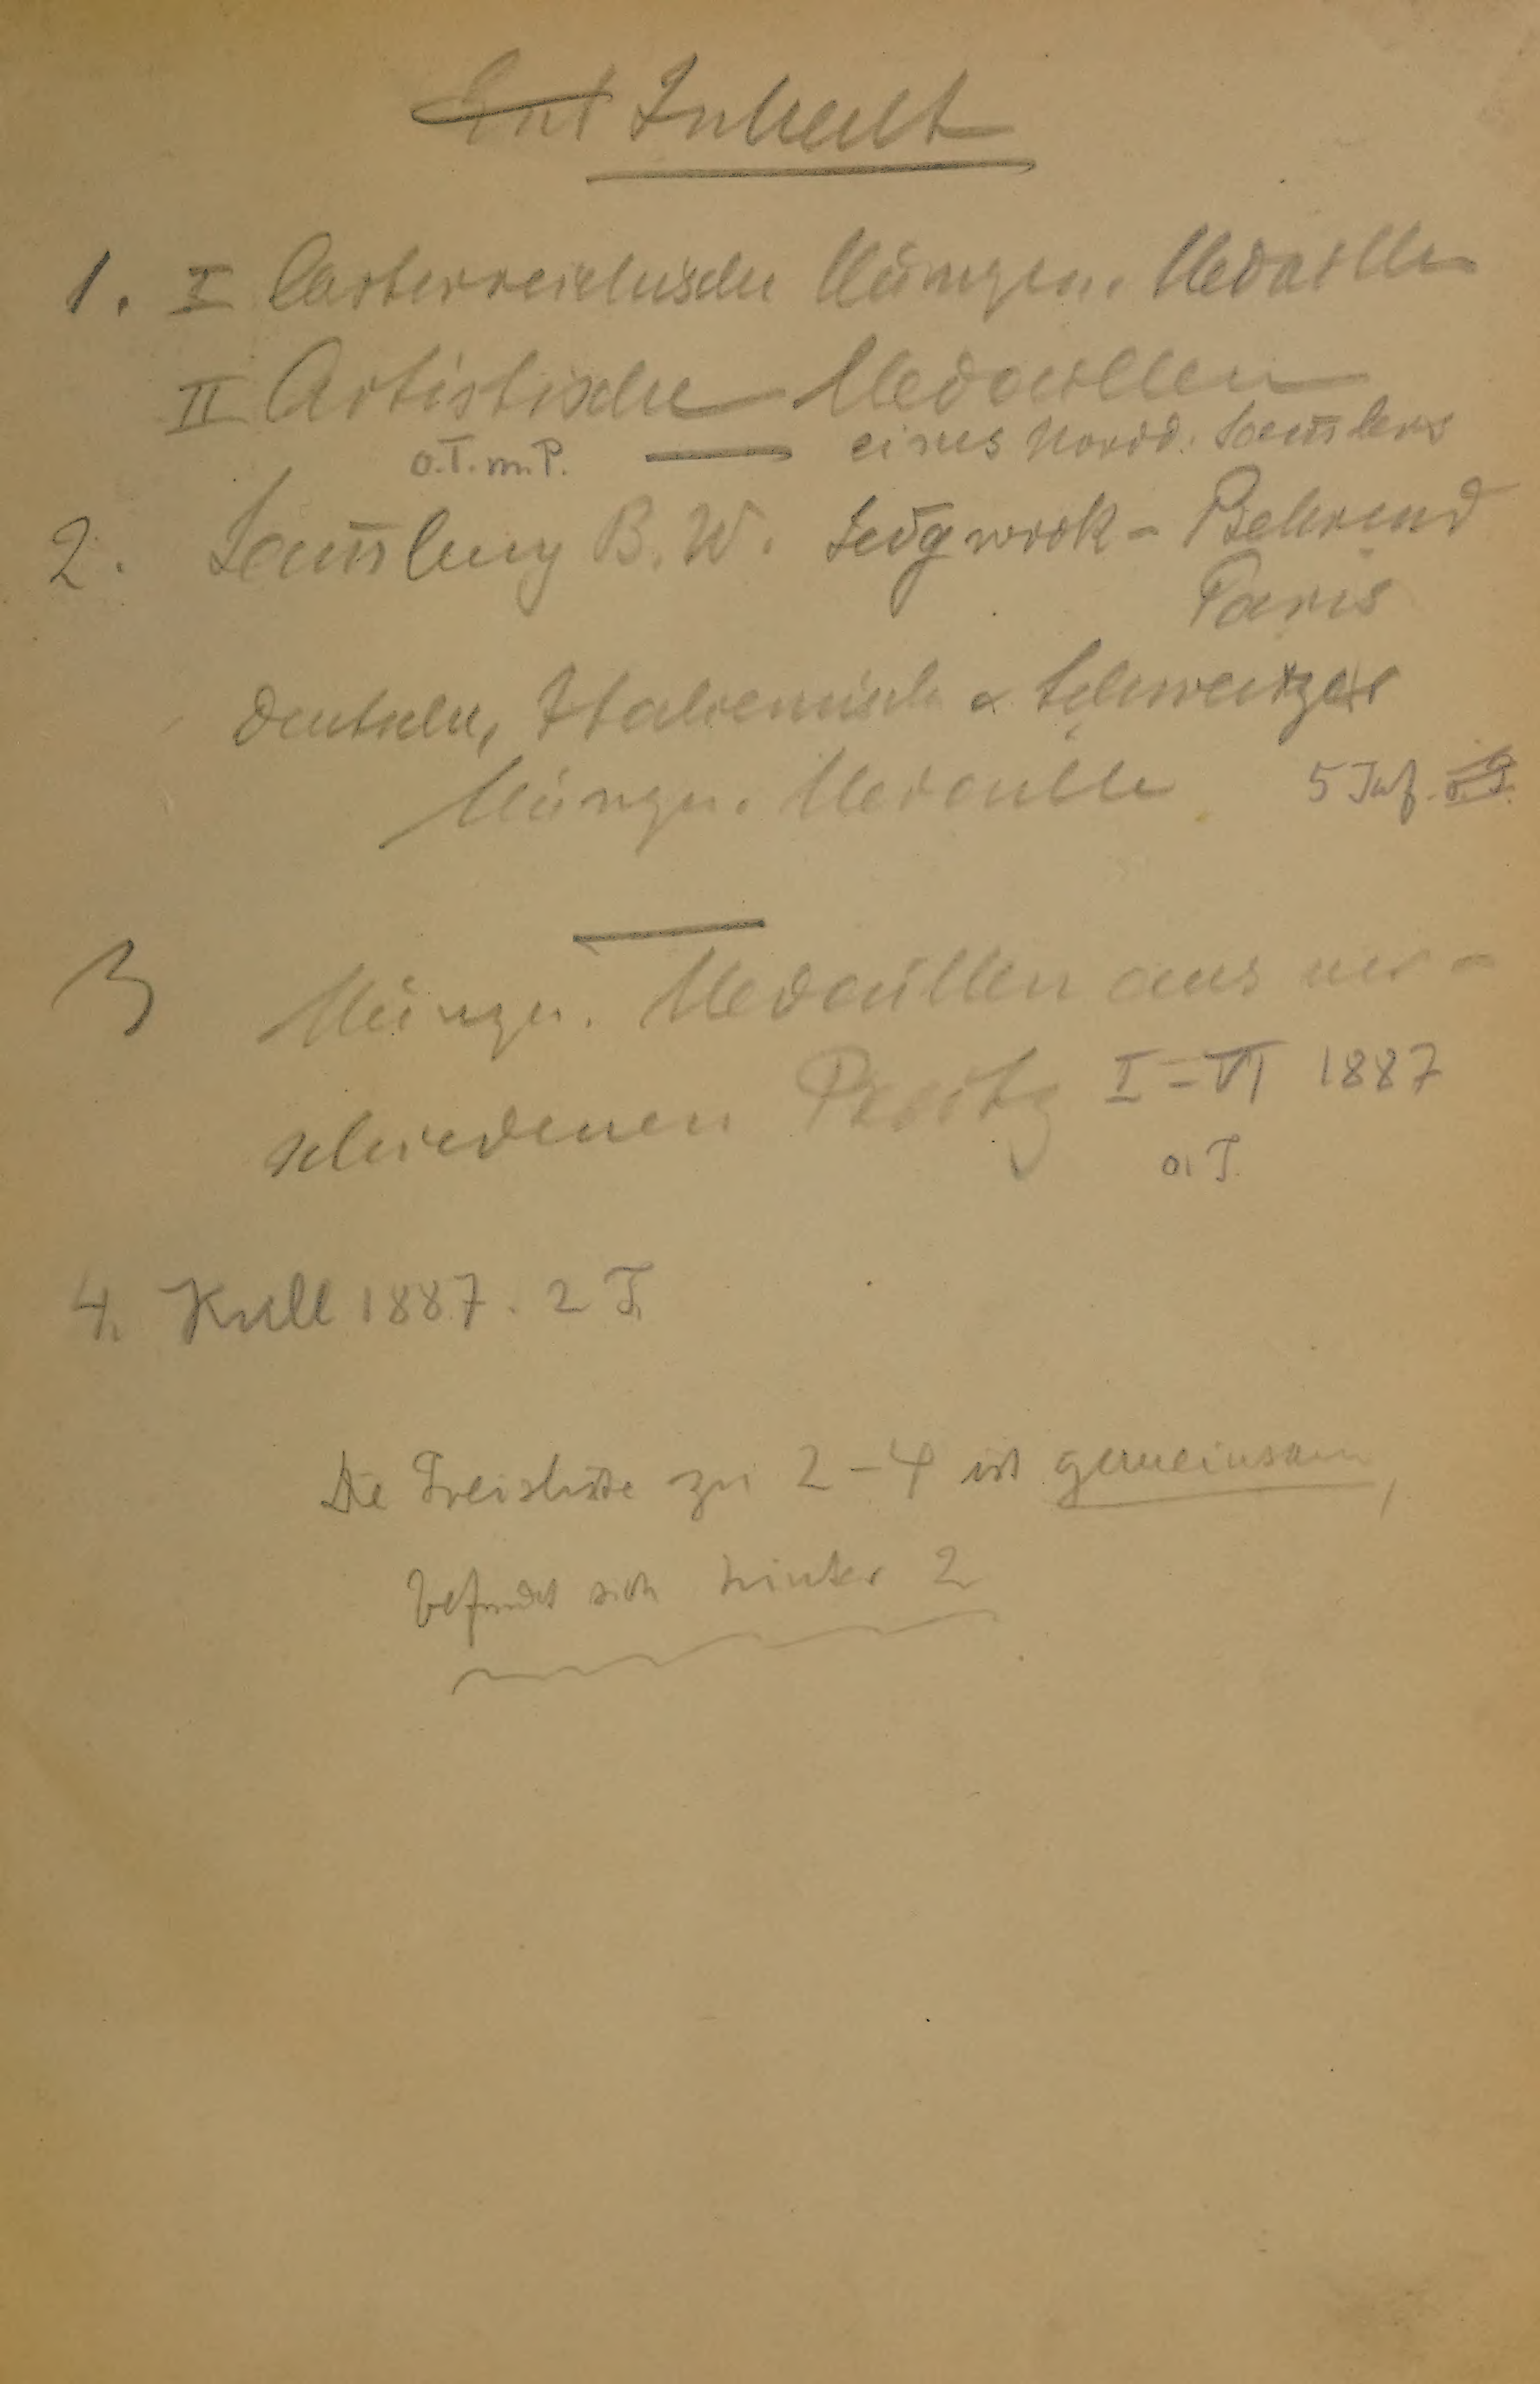 Ent Inhalt
1. I Oesterreichische Münzen. Medaillen
II Artistische Medaillen
o.T. m. P. — eines Nordd. Sam̅lers
2. Sam̅lung B. W. - Behrend
Paris
Deutsche, Italienisch & Schweitzer
Münzen. Medaille 5 Taf.
3 Münzen. Medaillen aus ver-
schiedenen Besitz I-VI 1887
o. T.
4. Kull 1887. 2 T.
Die Preisliste zu 2-4 ist gemeinsam,
befindet sich hinter 2